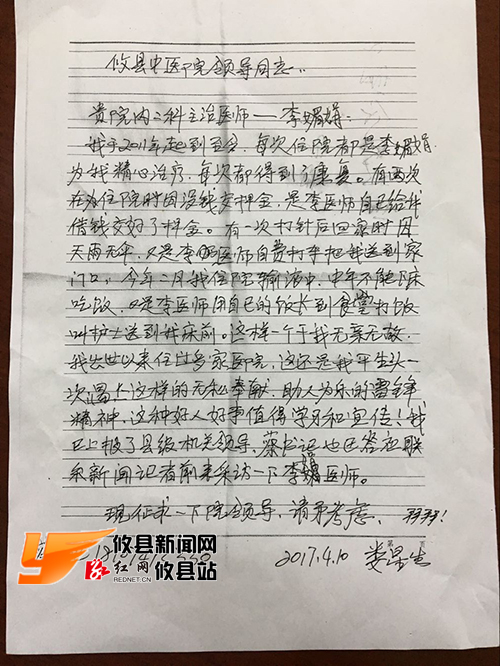 攸县中医院领导同志：
贵院内二科主治医师——李媚娟：
我于2011年起到至今，每次住院都是李媚娟
为我精心治疗，每次都得到了康复。有两次
在办住院时因没钱交押金，是李医师自己给我
借钱交好了押金。有一次打针后回家时因
天雨无伞，又是李医师自费打车把我送到家
门口，今年二月我住院输液中，中午不能下床
吃饭，又是李医师用自己的饭卡到食堂打饭
叫护士送到我床前。这样一个于我无亲无故，
我出世以来住过多家医院，这还是我平生头一
次遇上这样的无私奉献，助人为乐的雷锋
精神，这种好人好事值得学习和宣传！我
已上报了县级机关领导，蔡书记也已答应联
系新闻记者前来采访一下李媚医师。
现征求一下院领导，请予考虑，
2017.4.10
攸县新闻网
红网 攸县站
REDNET.CN